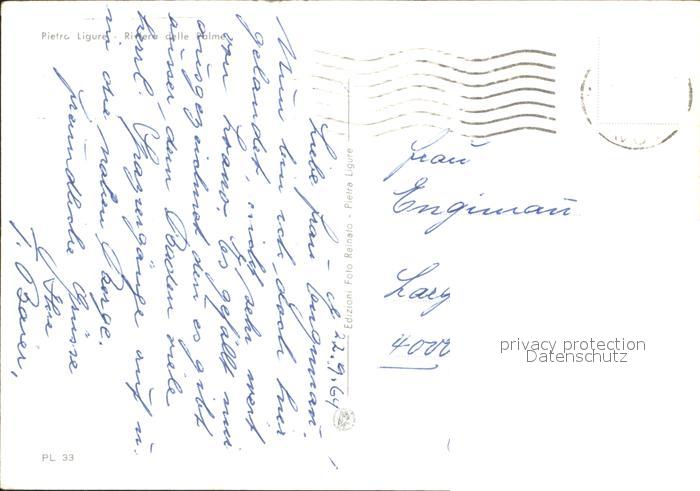 Pietra Ligure - Riviera delle Palme
d. 22.9.64
Liebe Frau Engimann!
Nun bin ich doch hier
gelandet, nicht sehr weit
von Loano. Es gefällt mir
ausgezeichnet denn es gibt
ausser dem Baden viele
herrl. Spaziergänge auf u.
in die nahen Berge.
Freundliche Grüsse
Ihre
J. Baier,
Edizioni Foto Reinato - Pietra Ligure
Frau
Engimann
4000
privacy protection
Datenschutz
PL 33